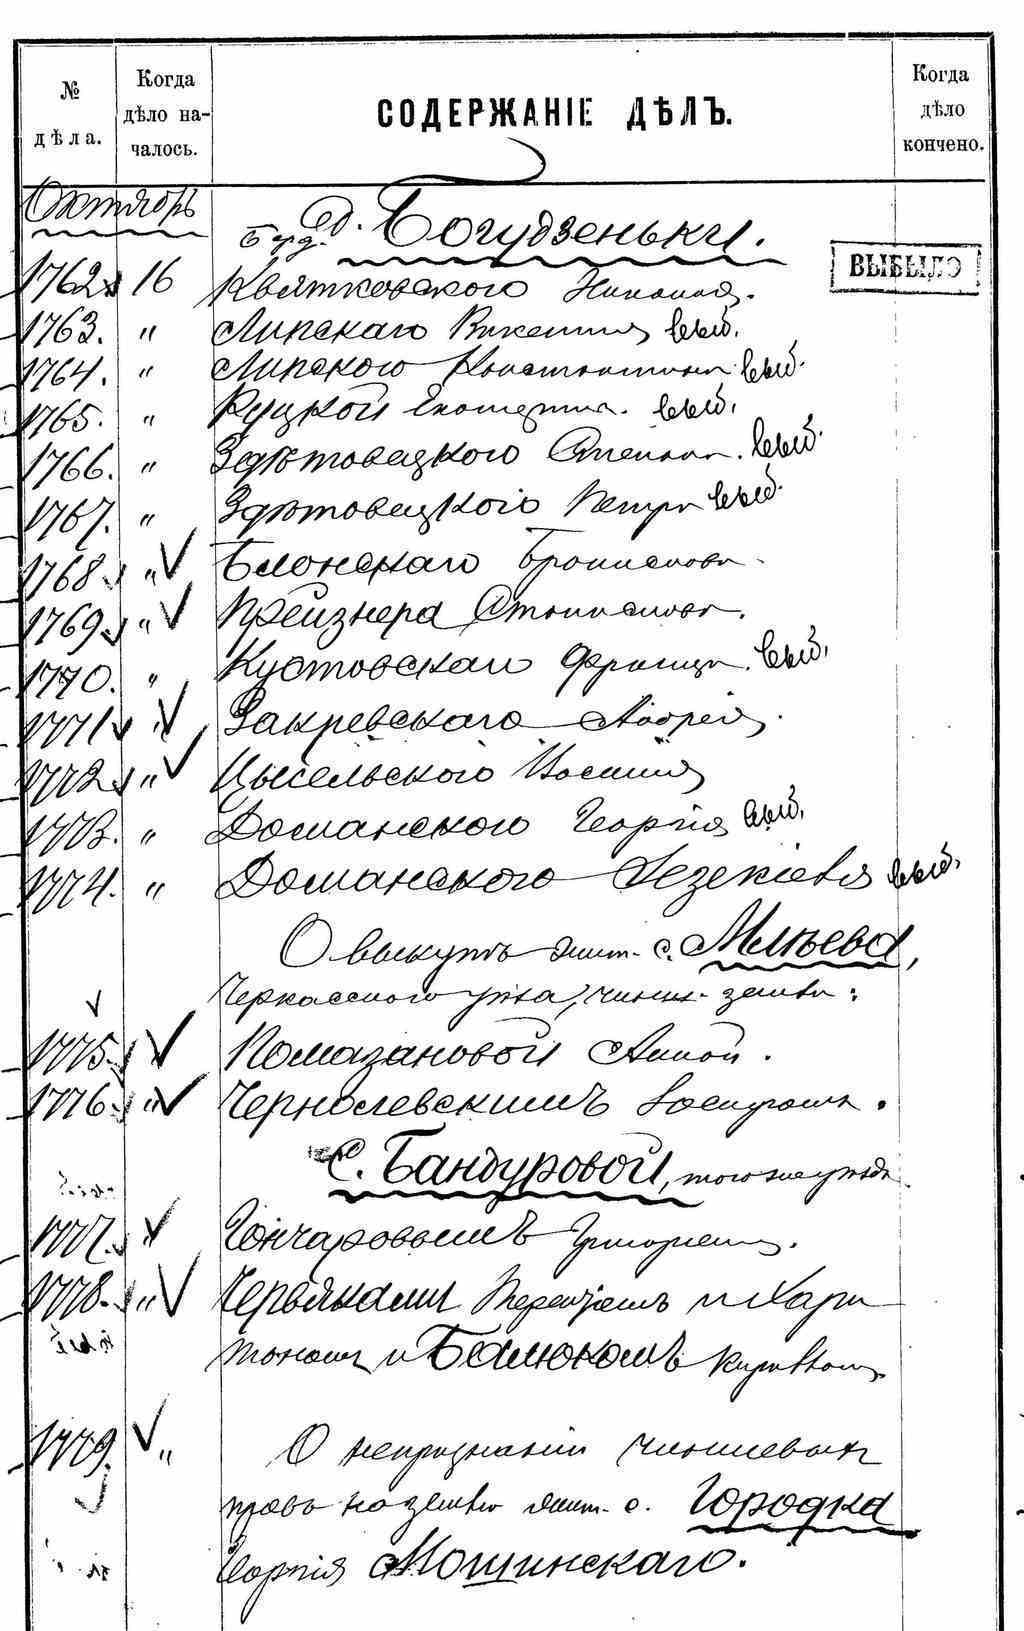 № дѣла.
Когда дѣло началось.
СОДЕРЖАНІЕ ДѢЛЪ.
Когда дѣло кончено.
Октябрь
Берд. д. Богудзеньки.
ВЫБЫЛО
1762 16 Квятковского
1763. " Липскаго Викентия выб.
1764. " Липского Константина выб.
1765. " Руцкой Екатерин. выб.
1766. " Здѣтовецкого Степана. выб.
1767. " Здѣтовецкого Петра выб.
1768 " Блонскаго Бронислава
1769 " Прейзнера Станислава.
1770. " Кустовскаго Франца. выб.
1771 " Закревскаго Андрея.
1772 " Цысельского
1773. " Доманского Георгія выб.
1774. " Доманского Іезекіеля выб.
О выкупѣ жит. с. Млѣева,
Черкасского уѣзда, чинш. земли:
1775 " Помазановой Анной.
1776. " Чернолевскимъ
С. Бандуровой, того же уѣзда
1777. Гончаровымъ Григорием.
1778. " Червяками Терентіемъ и Хари
тоном и Балюкомъ
1779. " О непризнаніи чиншевых
правъ на землю жит. с. Городка
Георгія Мошинскаго.